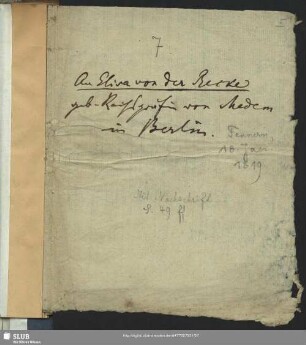 7
An Elisa von der Recke
geb. Reichsgräfin von Medem
in Berlin.
10
1819
Mit Nachschrift
S. 49 ff